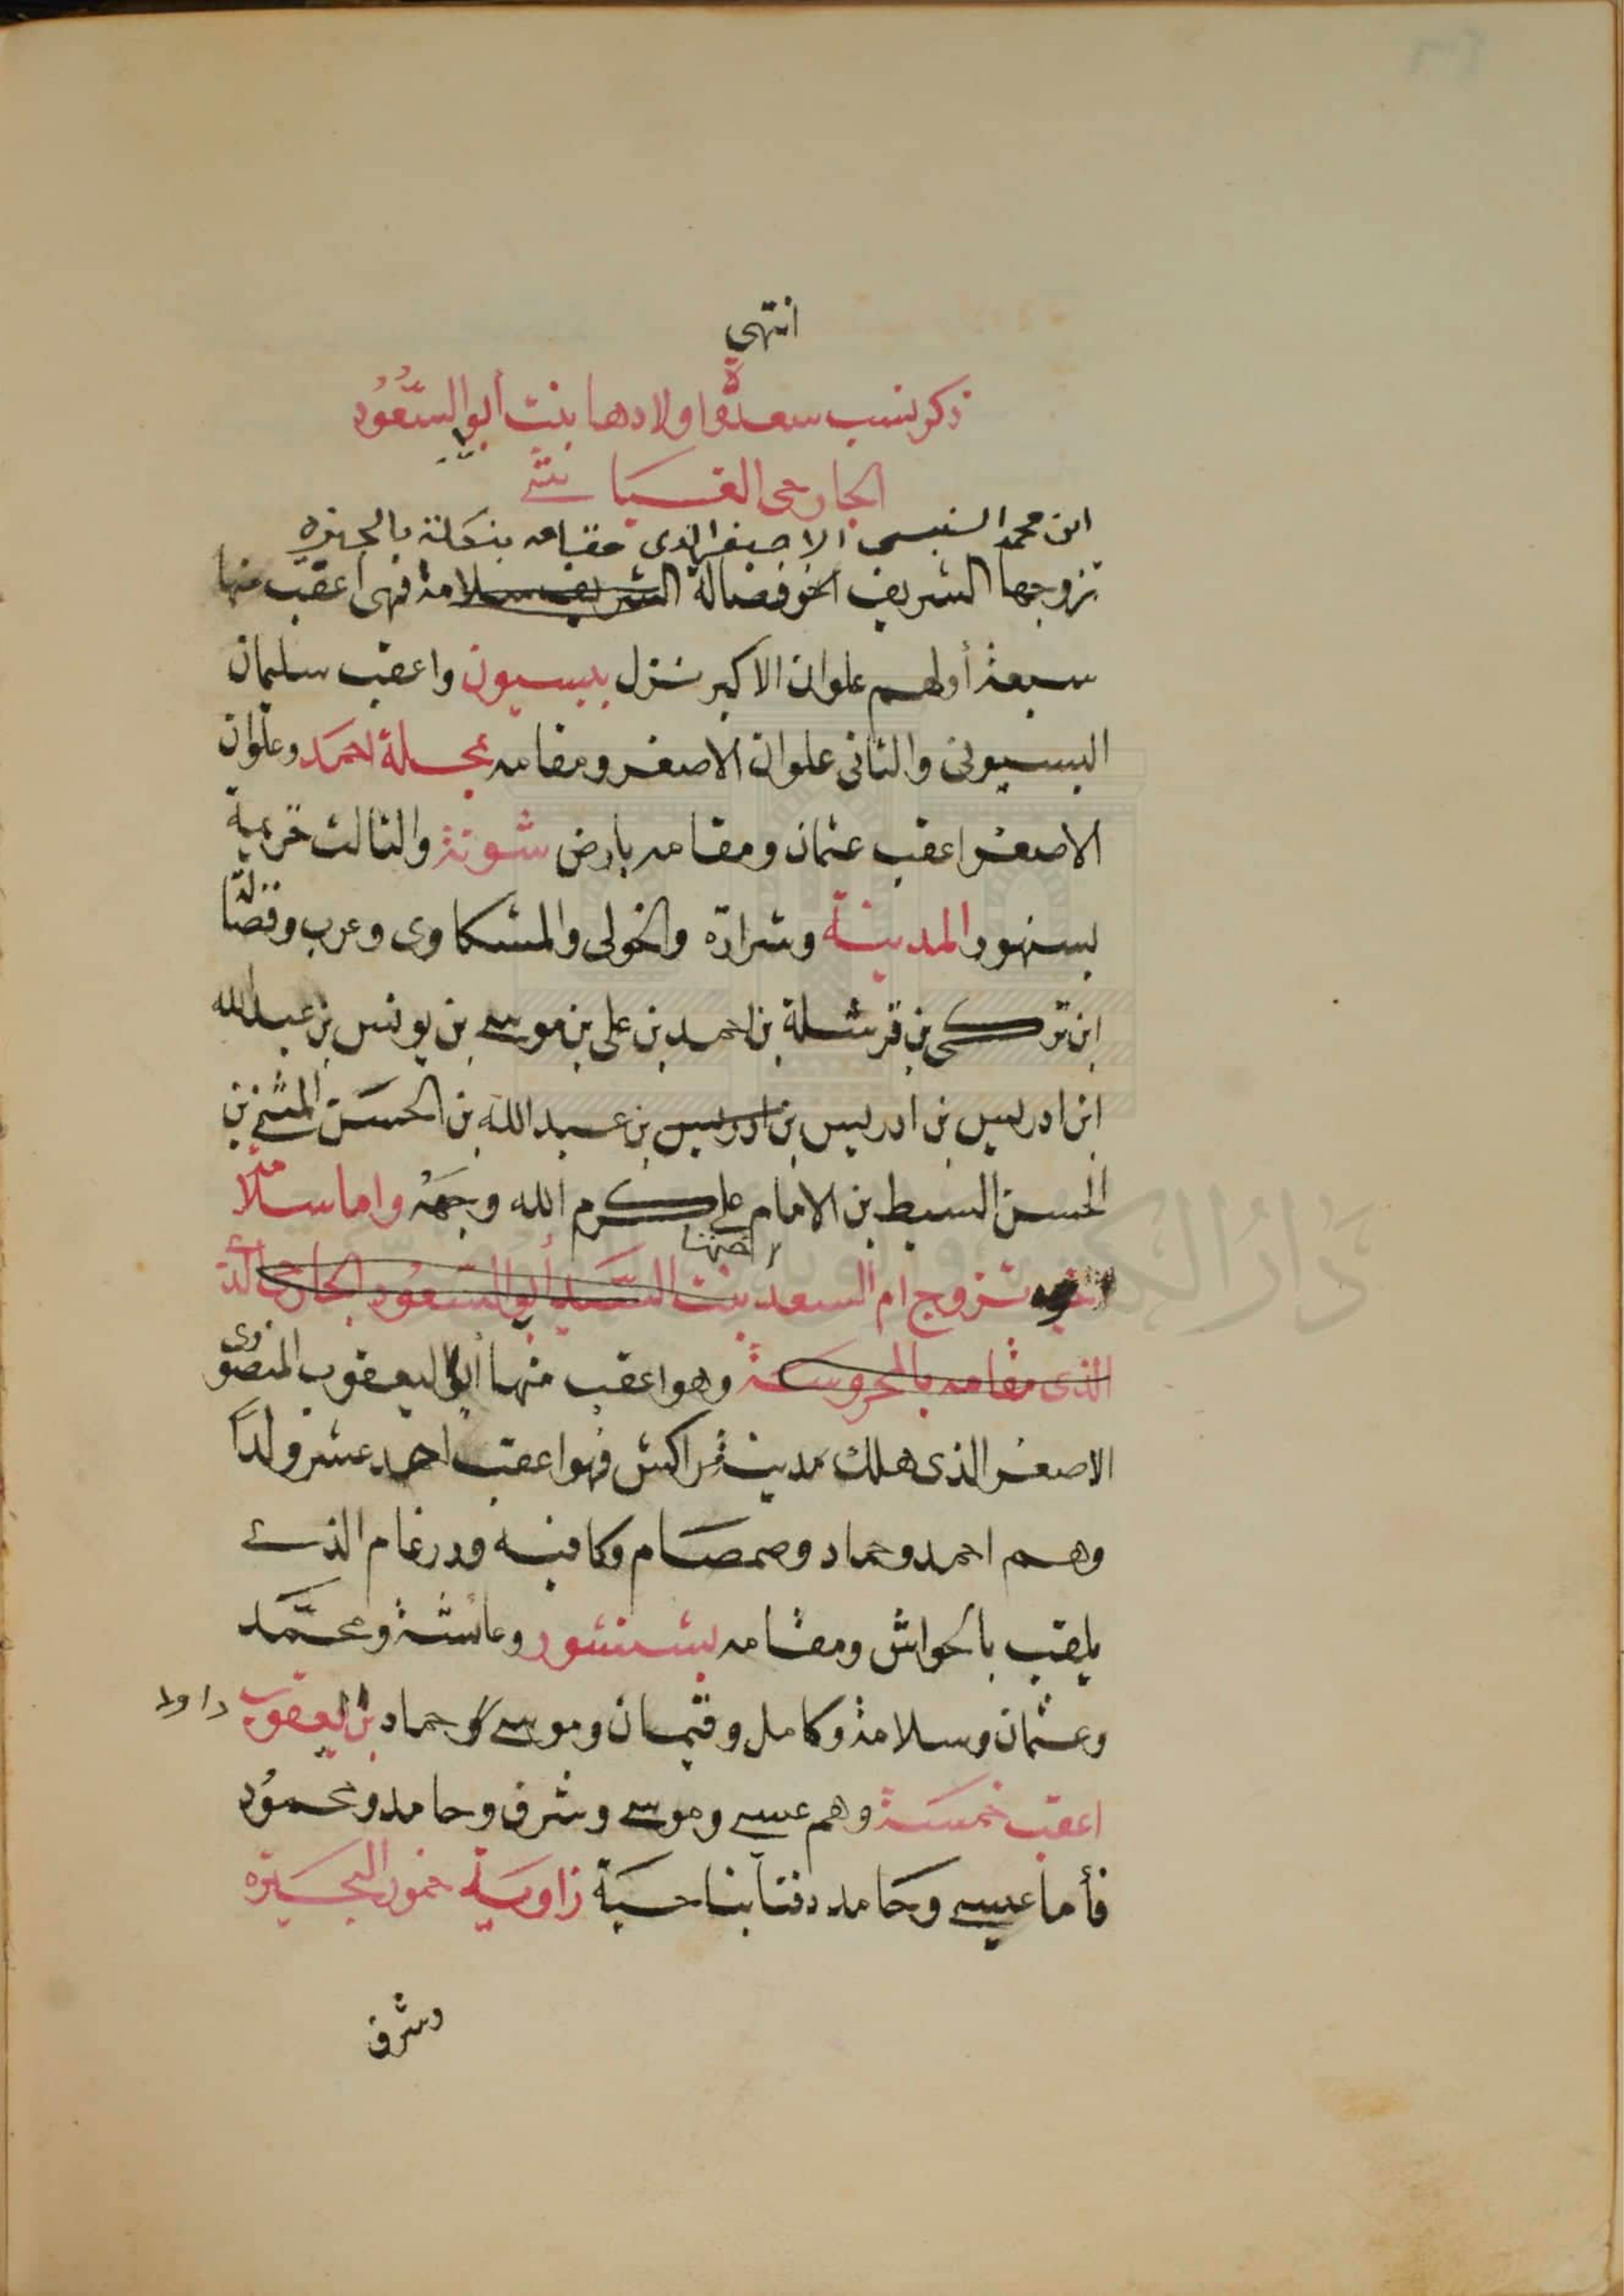 انتهى
ذكر نسب سعدة واولادها بنت أبو السُّعُود
الجارحى الغسيانى
ابن محمد النفيس الاصغر الذى مقامه بالجيزه
تزوجها الشريف اخو فضالة الشريف سلامة فهى اعقب منها
سبعة أولهم علوان الاكبر نزل ببسيون واعقب سليمان
البسيونى والثانى علوان الاصغر ومقامه بمحلة احمد وعلوان
الاصغر اعقب عثمان ومقامه بارض شونة والثالث
بسنهور المدينة وشرارة والخولى والمشكاوى وعرب وفضالة
ابن تركى بن قرشلة بن احمد بن على بن موسى بن يونس بن عبدالله
ابن ادريس بن ادريس بن ادريس بن عبد الله بن الحسن المثنى بن
الحسن السبط بن الامام على كرم الله وجهه واما سلامة
اختها
تزوج ام السعد بنت السيد أبو السعود الجارحى
الذى مقامه بالمحروسة وهو اعقب منها أبو اليعقوب المنصورى
الاصغر الذى هلك مدينة مراكش فهو اعقب احد عشر ولدًا
وهم احمد وحماد وصمصام وكافيه ودرغام الذى
يلقب بالحواش ومقامه بشنشور وعائشة ومحمد
وعثمان وسلامة وكامل وقتمان وموسى وحماد بن اليعقوب
داود
اعقب خمسة وهم عيسى وموسى وشرف وحامد ومحمود
فأما عيسى وحامد دفنا بناحية زاوية حمور البحيرة
وشرف
دار الكتب